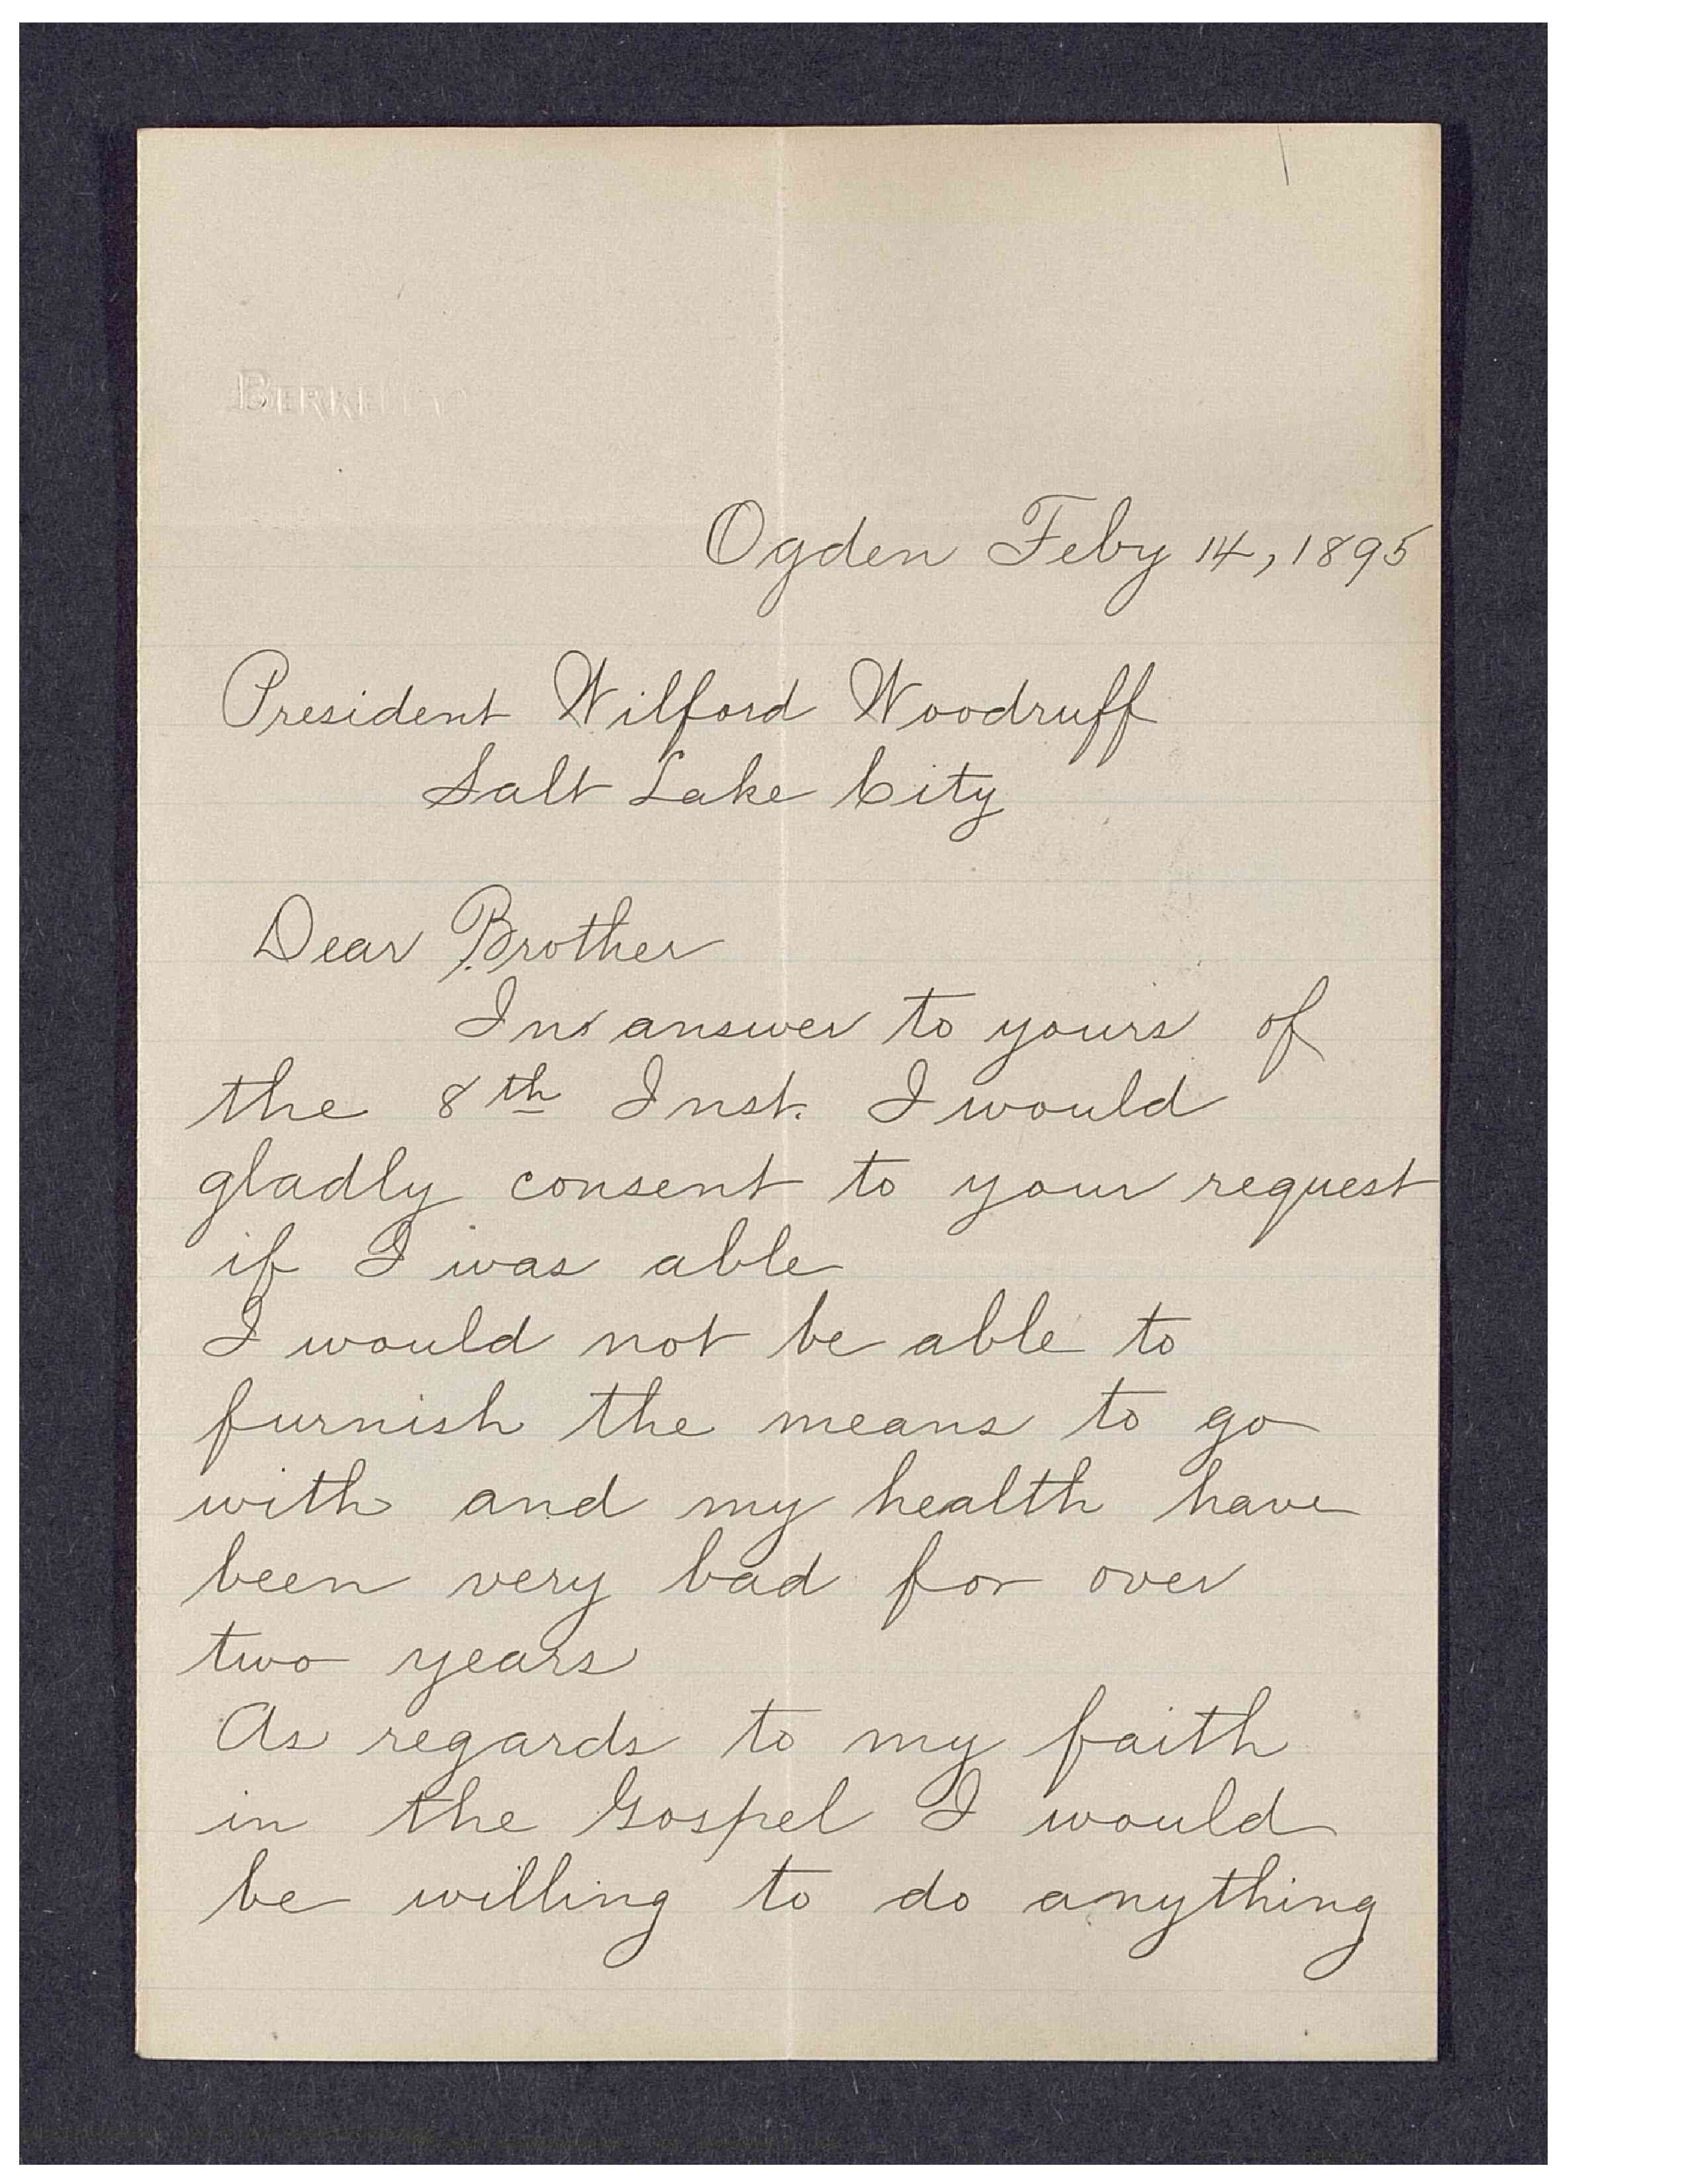 BERKELEY
Ogden Feby 14, 1895
President Wilford Woodruff
Salt Lake City
Dear Brother
In answer to yours of
the 8th Inst. I would
gladly consent to your request
if I was able
I would not be able to
furnish the means to go
with and my health have
been very bad for over
two years
As regards to my faith
in the Gospel I would
be willing to do anything